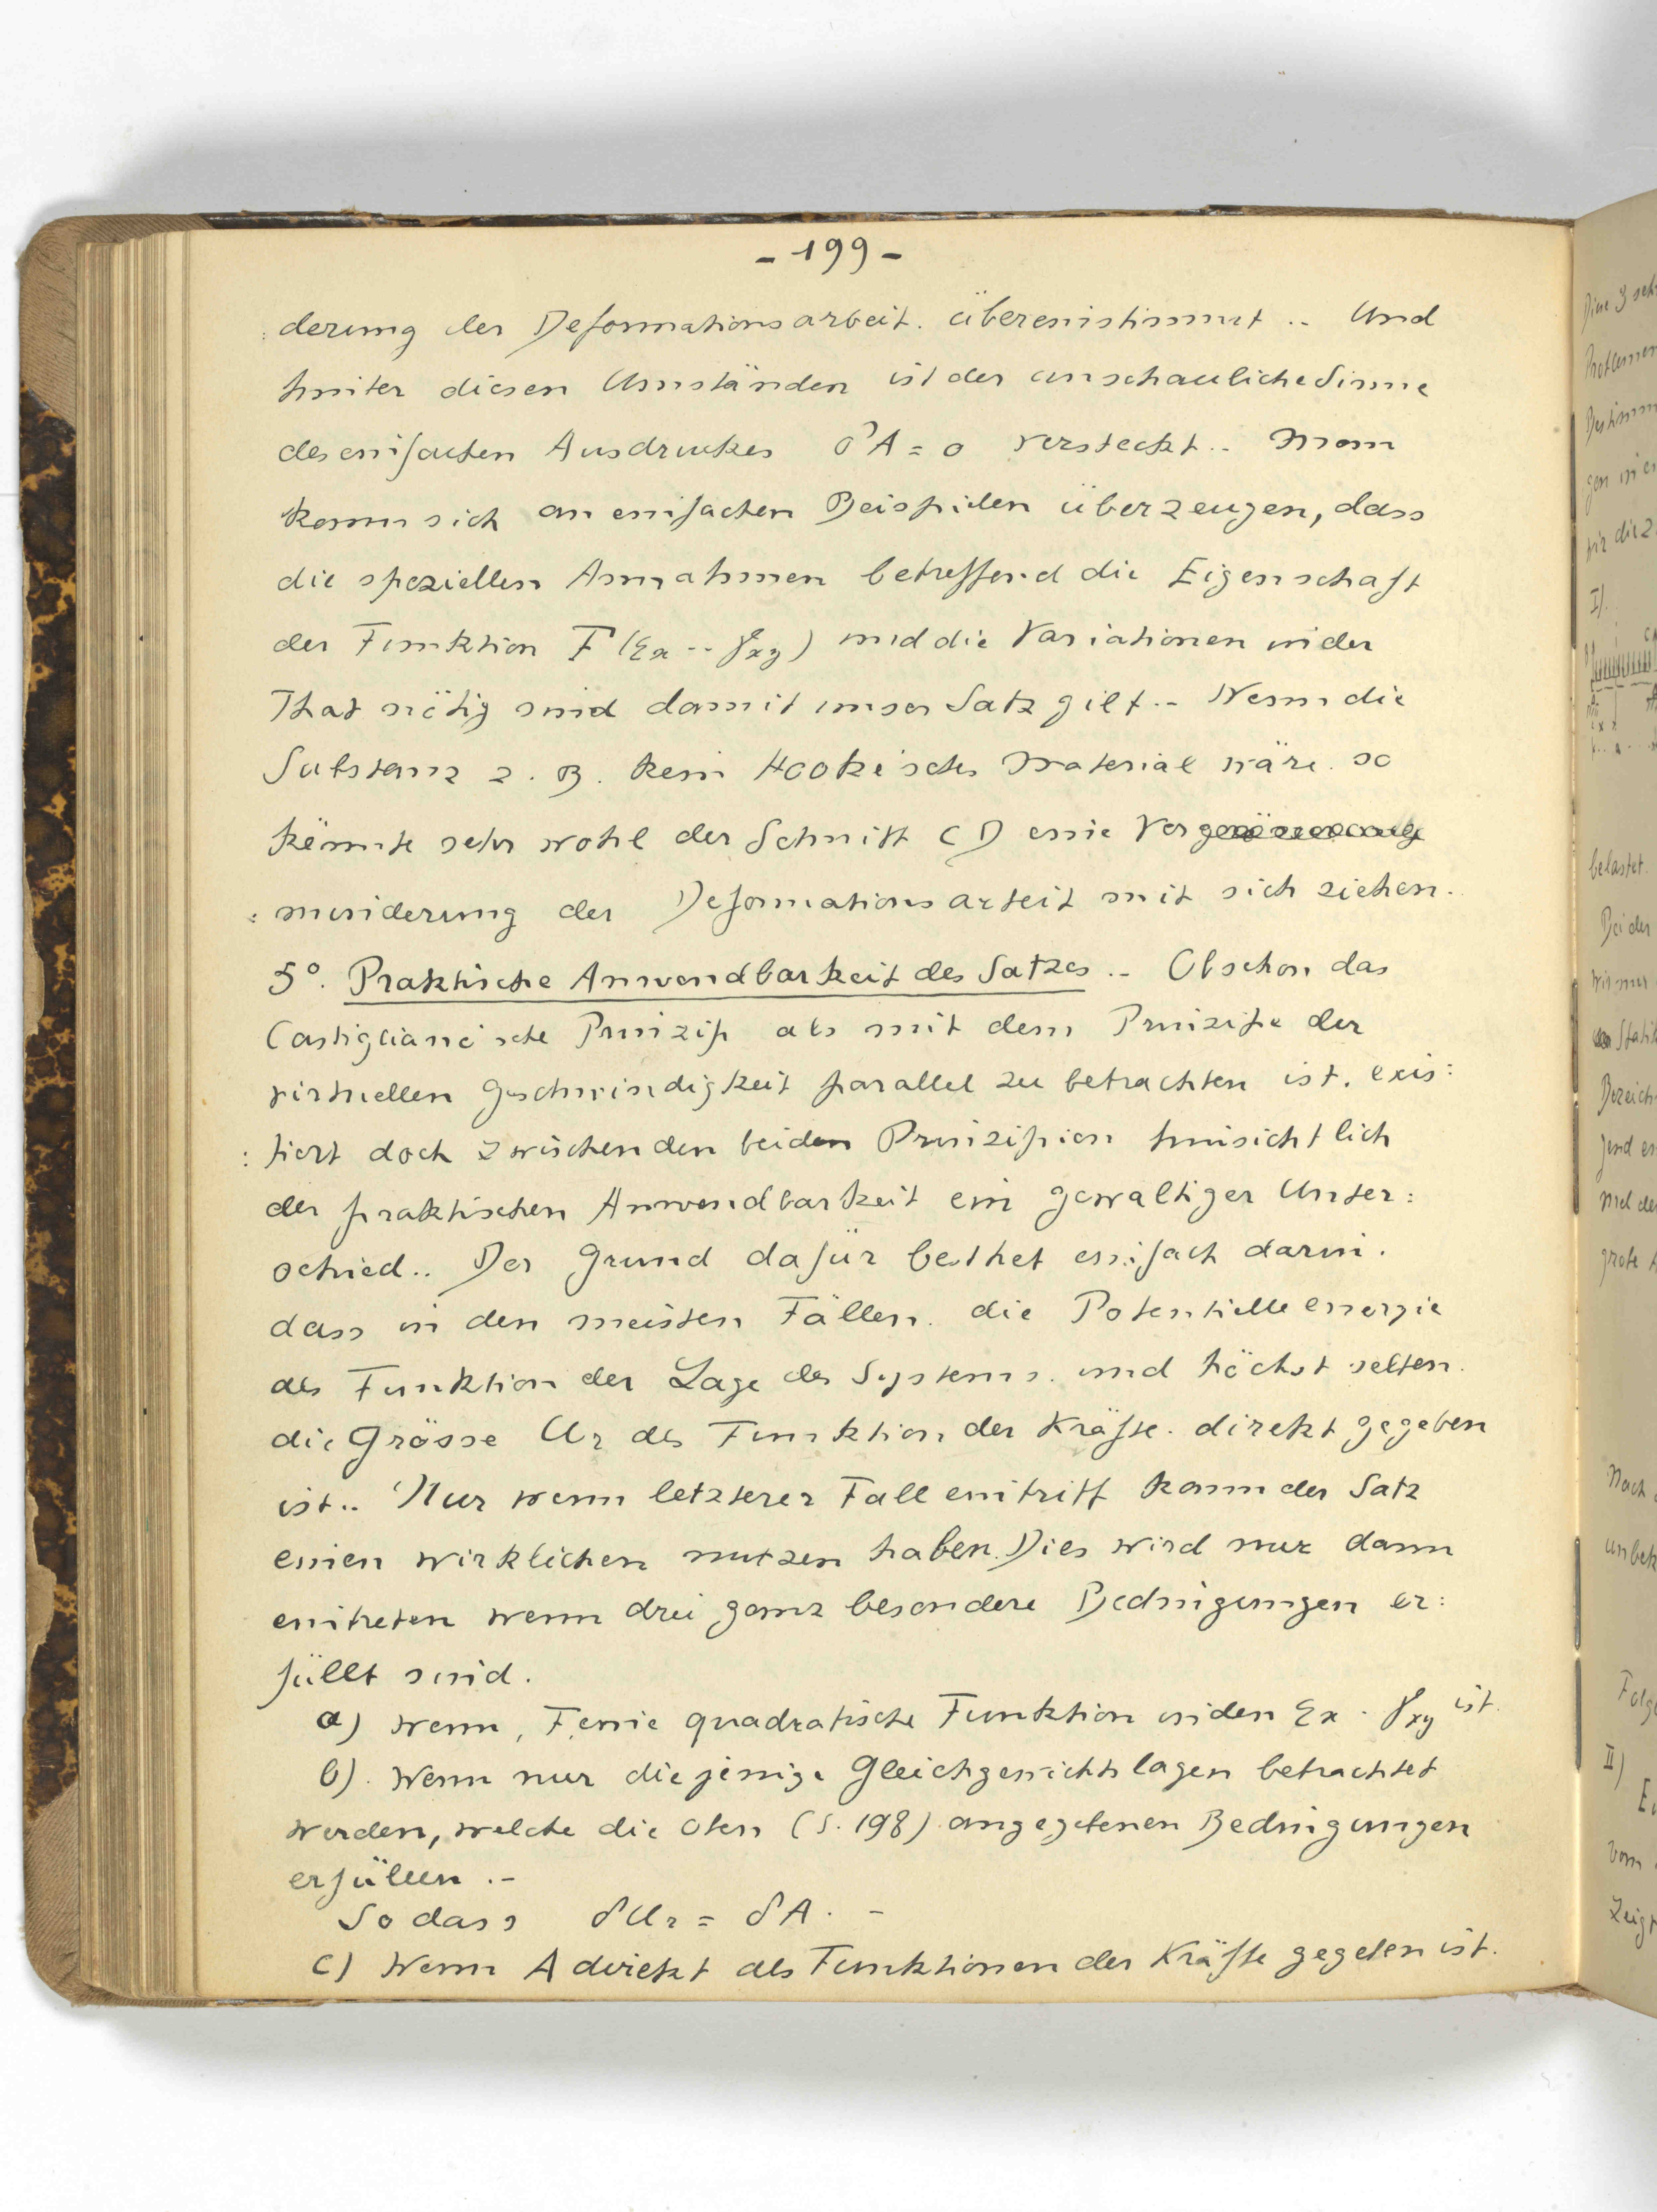 - 199 -
: derung der Deformationsarbeit. übereinstimmt .. Und
hinter diesen Umständen ist der anschauliche Sinne
des einfachen Ausdruckes δA = 0 versteckt .. Man
kann sich an einfachen Beispielen überzeugen, dass
die speziellen Annahmen betreffend die Eigenschaft
der Funktion F (εx -- γxy) und die Variationen in der
That nötig sind damit unser Satz gilt .. Wenn die
Substanz z. B. kein Hooke'sches Material wäre. so
könnte sehr wohl der Schnitt CD eine Ver
: minderung der Deformationsarbeit mit sich ziehen.
5°. Praktische Anwendbarkeit des Satzes .. Obschon das
Castigliano'sche Prinzip als mit dem Prinzipe der
virtuellen Geschwindigkeit parallel zu betrachten ist. exis:
: tiert doch zwischen den beiden Prinzipien hinsichtlich
der praktischen Anwendbarkeit ein gewaltiger Unter:
schied .. Der Grund dafür besthet einfach darin.
dass in den meisten Fällen. die Potentielle energie
als Funktion der Lage des Systems. und höchst selten.
die Grösse Ur als Funktion der Kräfte. direkt gegeben
ist .. Nur wenn letzterer Fall eintritt kann der Satz
einen wirklichen nutzen haben. Dies wird nur dann
eintreten wenn drei ganz besondere Bedingungen er:
füllt sind.
a) wenn, F eine quadratische Funktion in den εx . γxy ist.
b). Wenn nur diejenige Gleichgewichtslagen betrachtet
werden, welche die oben (S. 198) angegebenen Bedingungen
erfüllen .-
So dass δUr = δA. -
c) Wenn A direkt als Funktionen der Kräfte gegeben ist.
I).
belastet.
Bei der
Nach
II)
vom